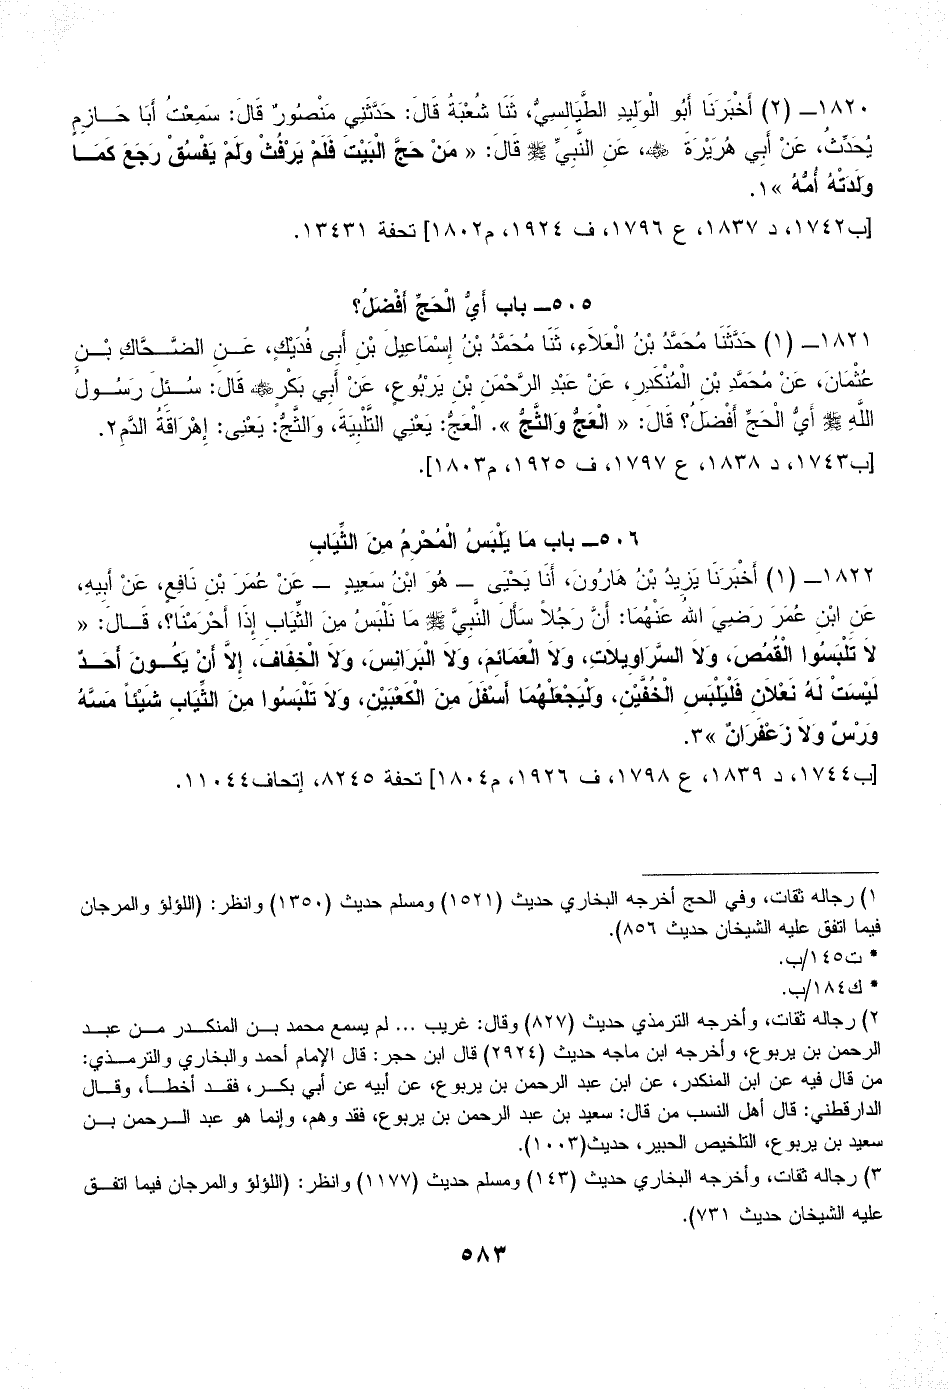 ١٨٢٠ــ (٢) أَخْبَرَنَا أَبُو الْوَلِيدِ الطَّيَالِسِيُّ، ثَنَا شُعْبَةُ قَالَ: حَدَّثَنِي مَنْصُورٌ قَالَ: سَمِعْتُ أَبَا حَـازِمٍ
يُحَدِّثُ، عَنْ أَبِي هُرَيْرَةَ ﷺ، عَنِ النَّبِيِّ ﷺ قَالَ: « مَنْ حَجَّ الْبَيْتَ فَلَمْ يَرْفُثْ وَلَمْ يَفْسُقْ رَجَعَ كَمَـا
وَلَدَتْهُ أُمُّهُ »١.
[ب١٧٤٢، د ١٨٣٧، ع ١٧٩٦، ف ١٩٢٤، م١٨٠٢] تحفة ١٣٤٣١.
٥٠٥ــ باب أَيُّ الْحَجِّ أَفْضَلُ؟
١٨٢١ــ (١) حَدَّثَنَا مُحَمَّدُ بْنُ الْعَلَاءِ، ثَنَا مُحَمَّدُ بْنُ إِسْمَاعِيلَ بْنِ أَبِى فُدَيْكٍ، عَـنِ الضَّـحَّاكِ بْـنِ
عُثْمَانَ، عَنْ مُحَمَّدِ بْنِ الْمُنْكَدِرِ، عَنْ عَبْدِ الرَّحْمَنِ بْنِ يَرْبُوعٍ، عَنْ أَبِي بَكْرٍ قَالَ: سُـئِلَ رَسُـولُ
اللَّهِ ﷺ أَيُّ الْحَجِّ أَفْضَلُ؟ قَالَ: « الْعَجُّ وَالثَّجُّ ». الْعَجُّ: يَعْنِي التَّلْبِيَةَ، وَالثَّجُّ: يَعْنِى: إِهْرَاقَةُ الدَّمِ٢.
[ب١٧٤٣، د ١٨٣٨، ع ١٧٩٧، ف ١٩٢٥، م١٨٠٣].
٥٠٦ــ باب مَا يَلْبَسُ الْمُحْرِمُ مِنَ الثِّيَابِ
١٨٢٢ــ (١) أَخْبَرَنَا يَزِيدُ بْنُ هَارُونَ، أَنَا يَحْيَى ــ هُوَ ابْنُ سَعِيدٍ ــ عَنْ عُمَرَ بْنِ نَافِعٍ، عَنْ أَبِيهِ،
عَنِ ابْنِ عُمَرَ رَضِيَ اللهُ عَنْهُمَا: أَنَّ رَجُلاً سَأَلَ النَّبِيَّ ﷺ مَا نَلْبَسُ مِنَ الثِّيَابِ إِذَا أَحْرَمْنَا؟، قَـالَ: «
لاَ تَلْبَسُوا الْقُمُصَ، وَلاَ السَّرَاوِيلاَتِ، وَلاَ الْعَمَائِمَ، وَلاَ الْبَرَانِسَ، وَلاَ الْخِفَافَ، إِلاَّ أَنْ يَكُـونَ أَحَـدٌ
لَيْسَتْ لَهُ نَعْلاَنِ فَلْيَلْبَسِ الْخُفَّيْنِ، وَلْيَجْعَلْهُمَا أَسْفَلَ مِنَ الْكَعْبَيْنِ، وَلاَ تَلْبَسُوا مِنَ الثِّيَابِ شَيْئاً مَسَّهُ
وَرْسٌ وَلاَ زَعْفَرَانٌ »٣.
[ب١٧٤٤، د ١٨٣٩، ع ١٧٩٨، ف ١٩٢٦، م١٨٠٤] تحفة ٨٢٤٥، إتحاف١١٠٤٤.
١) رجاله ثقات، وفي الحج أخرجه البخاري حديث (١٥٢١) ومسلم حديث (١٣٥٠) وانظر: (اللؤلؤ والمرجان
فيما اتفق عليه الشيخان حديث ٨٥٦).
* ت١٤٥/ب.
* ك١٨٤/ب.
٢) رجاله ثقات، وأخرجه الترمذي حديث (٨٢٧) وقال: غريب ... لم يسمع محمد بـن المنكـدر مـن عبـد
الرحمن بن يربوع، وأخرجه ابن ماجه حديث (٢٩٢٤) قال ابن حجر: قال الإمام أحمد والبخاري والترمـذي:
من قال فيه عن ابن المنكدر، عن ابن عبد الرحمن بن يربوع، عن أبيه عن أبي بكـر، فقـد أخطـأ، وقـال
الدارقطني: قال أهل النسب من قال: سعيد بن عبد الرحمن بن يربوع، فقد وهم، وإنما هو عبد الـرحمن بـن
سعيد بن يربوع، التلخيص الحبير، حديث(١٠٠٣).
٣) رجاله ثقات، وأخرجه البخاري حديث (١٤٣) ومسلم حديث (١١٧٧) وانظر: (اللؤلؤ والمرجان فيما اتفـق
عليه الشيخان حديث ٧٣١).
٥٨٣